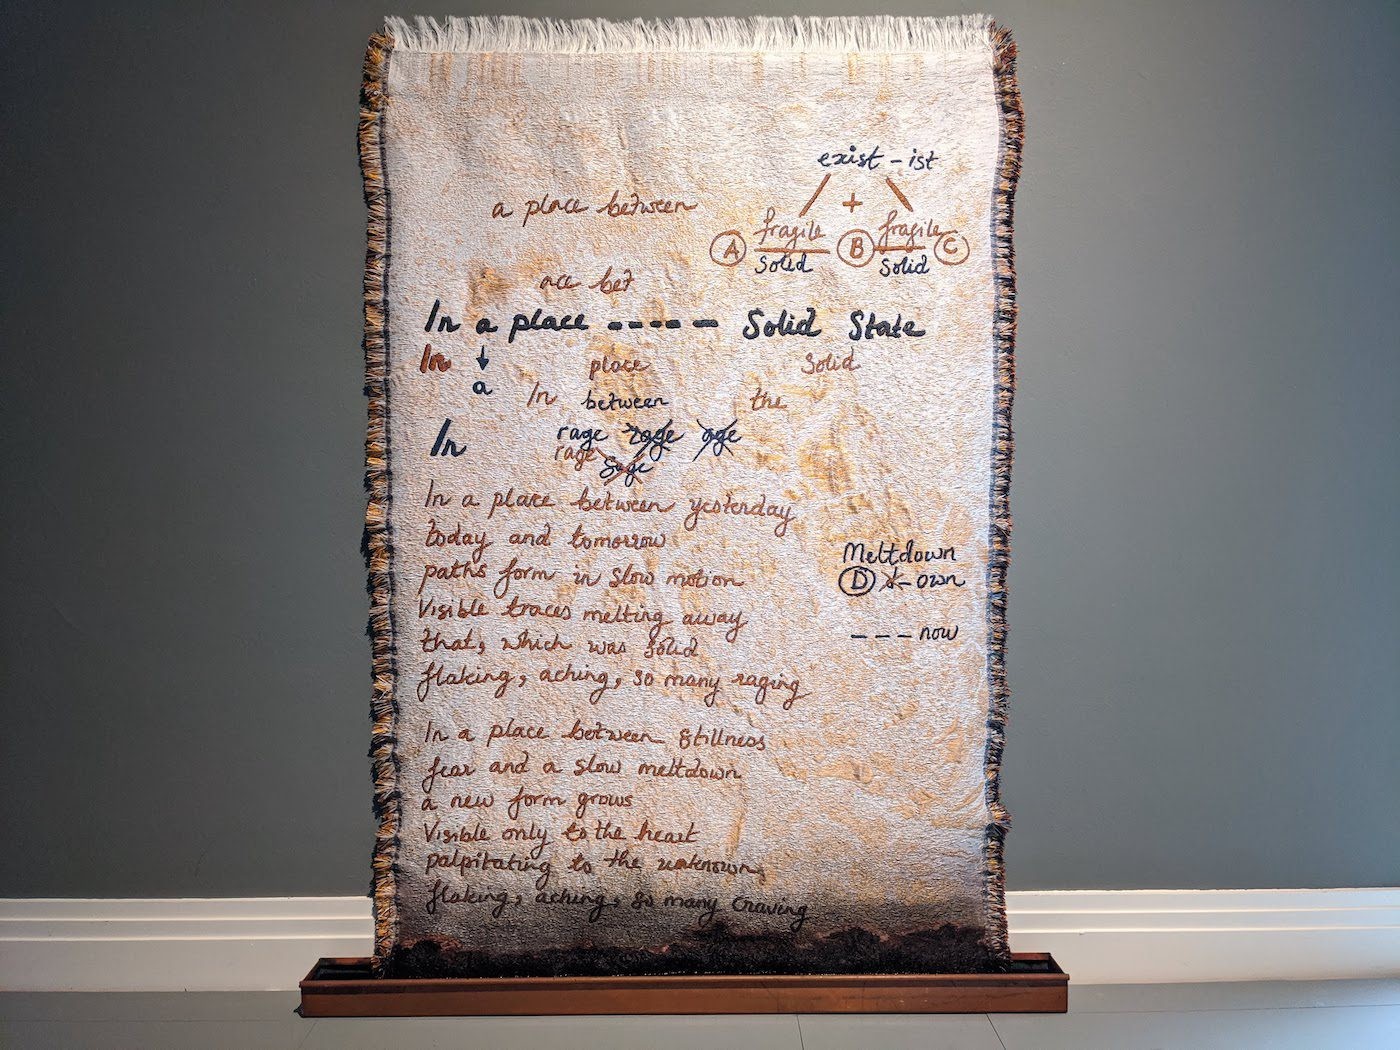 exist - ist
a place between
+
fragile fragile
A B C
solid solid
ace bet
In a place ----- Solid State
In place Solid
a In between the
In rage rage age
rage sage
In a place between yesterday
today and tomorrow
paths form in slow motion
Visible traces melting away
that, which was solid
flaking, aching, so many raging
Meltdown
D d - own
--- now
In a place between stillness
fear and a slow meltdown
a new form grows
Visible only to the heart
palpitating to the unknown,
flaking, aching, so many craving